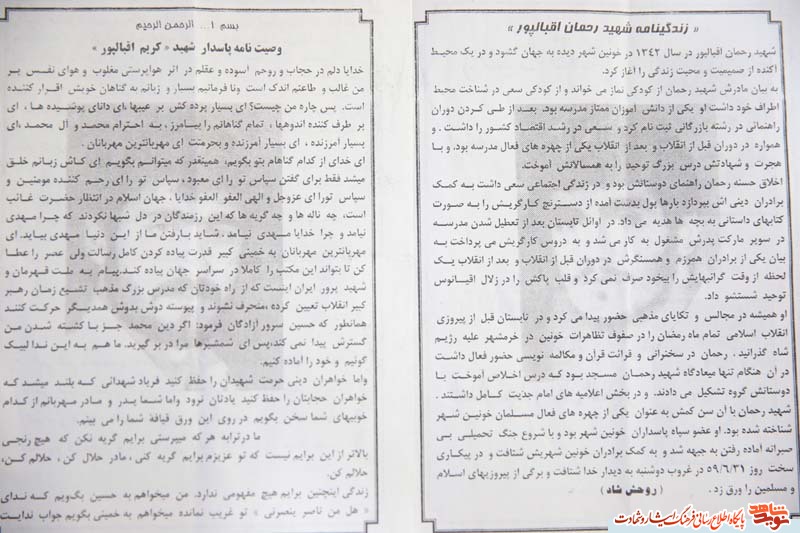 « زندگینامه شهید رحمان اقبالپور »
شهید رحمان اقبالپور در سال ۱۳۴۲ در خونین شهر دیده به جهان گشود و در یک محیط
آکنده از صمیمیت و محبت زندگی را آغاز کرد.
به بیان مادرش شهید رحمان از کودکی نماز می خواند و از کودکی سعی در شناخت محیط
اطراف خود داشت او یکی از دانش آموزان ممتاز مدرسه بود. بعد از طی کردن دوران
راهنمائی در رشته بازرگانی ثبت نام کرد و سعی در رشد اقتصاد کشور را داشت . و
همواره در دوران قبل از انقلاب و بعد از انقلاب یکی از چهره های فعال مدرسه بود. و با
هجرت و شهادتش درس بزرگ توحید را به همسالانش آموخت.
اخلاق حسنه رحمان راهنمای دوستانش بود و در زندگی اجتماعی سعی داشت به کمک
برادران دینی اش بپردازد بارها پول بدست آمده از دسترنج کارگریش را به صورت
کتابهای داستانی به بچه ها هدیه می داد. در اوائل تابستان بعد از تعطیل شدن مدرسه
در سوپر مارکت پدرش مشغول به کار می شد و به دروس کارگریش می پرداخت به
بیان یکی از برادران همرزم و همسنگرش در دوران قبل از انقلاب و بعد از انقلاب یک
لحظه از وقت گرانبهایش را بیخود صرف نمی کرد و قلب پاکش را در زلال اقیانوس
توحید شستشو داد.
او همیشه در مجالس و تکایای مذهبی حضور پیدا می کرد و در تابستان قبل از پیروزی
انقلاب اسلامی تمام ماه رمضان را در صفوف تظاهرات خونین در خرمشهر علیه رژیم
شاه گذرانید . رحمان در سخنرانی و قرائت قرآن و مکالمه نویسی حضور فعال داشت
در آن هنگام تنها میعادگاه شهید رحمان مسجد بود که درس اخلاص آموخت با
دوستانش گروه تشکیل می دادند. و در بخش اعلامیه های امام جدیت کامل داشتند .
شهید رحمان با آن سن کمش به عنوان یکی از چهره های فعال مسلمان خونین شهر
شناخته شده بود. او عضو سپاه پاسداران خونین شهر بود و با شروع جنگ تحمیلی بی
صبرانه آماده رفتن به جبهه شد و به کمک برادران خونین شهریش شتافت و در پیکاری
سخت روز ۵۹/۶/۳۱ در غروب دوشنبه به دیدار خدا شتافت و برگی از پیروزیهای اسلام
و مسلمین را ورق زد . ( روحش شاد )
بسم ا... الرحمن الرحیم
وصیت نامه پاسدار شهید « کریم اقبالپور »
خدایا دلم در حجاب و روحم آسوده و عقلم در اثر هواپرستی مغلوب و هوای نفس بر
من غالب و طاعتم اندک است ونا فرمانیم بسیار و زبانم به گناهان خویش اقرار کننده
است. پس چاره من چیست؟ ای بسیار پرده کش بر عیبها ،ای دانای پوشیده ها ، ای
بر طرف کننده اندوهها ، تمام گناهانم را بیامرز، به احترام محمد و آل محمد،ای
بسیار آمرزنده ، ای بسیار آمرزنده و بحرمتت ای مهربانترین مهربانان .
ای خدای از کدام گناهام بتو بگویم، همینقدر که میتوانم بگویم ای کاش زبانم خلق
میشد فقط برای گفتن سپاس تو را ای معبود، سپاس تو را ای رحم کننده مومنین و
سپاس تورا ای عزوجل و الهی العفو العفو خدایا ، جهان اسلام در انتظار حضرت غائب
است، چه ناله ها و چه گریه ها که این رزمندگان در دل شبها نکردند که چرا مهدی
نیامد و چرا خدایا مهدی نیامد ، شاید بارفتن ما از این دنیا مهدی بیاید. ای
مهربانترین مهربانان به خمینی کبیر قدرت پیاده کردن کامل رسالت ولی عصر را عطا
کن تا بتواند این مکتب را کاملا در سراسر جهان پیاده کند.پیام به ملت قهرمان و
شهید پرور ایران اینست که از راه خودتان که مدرس بزرگ مذهب تشیع زمان رهبر
کبیر انقلاب تعیین کرده ،منحرف نشوند و پیوسته دوش بدوش همدیگر حرکت کنند
همانطور که حسین سرور آزادگان فرمود: اگر دین محمد جز با کشته شدن من
گسترش پیدا نمی کند،پس ای شمشیرها مرا در بر گیرید. ما هم به این ندا لبیک
گوئیم و خود را آماده کنیم.
واما خواهران دینی حرمت شهیدان را حفظ کنید فریاد شهدائی که بلند میشد که
خواهران حجابتان را حفظ کنید یادتان نرود واما شما پدر و مادر مهربانم از کدام
خوبیهای شما سخن بگویم در روی این ورق قیافه شما را می بینم.
مادر ترابه هر که میپرستی برایم گریه نکن که هیچ رنجی
بالاتر از این برایم نیست که تو عزیزم برایم گریه کنی، مادر حلال کن، حلالم کن،
حلالم کن.
زندگی اینچنین برایم هیچ مفهومی ندارد. من میخواهم به حسین بگویم که ندای
« هل من ناصر ینصرنی » تو غریب نمانده میخواهم به خمینی بگویم جواب ندایت
نوید شاهد
پایگاه اطلاع رسانی فرهنگ ایثار و شهادت